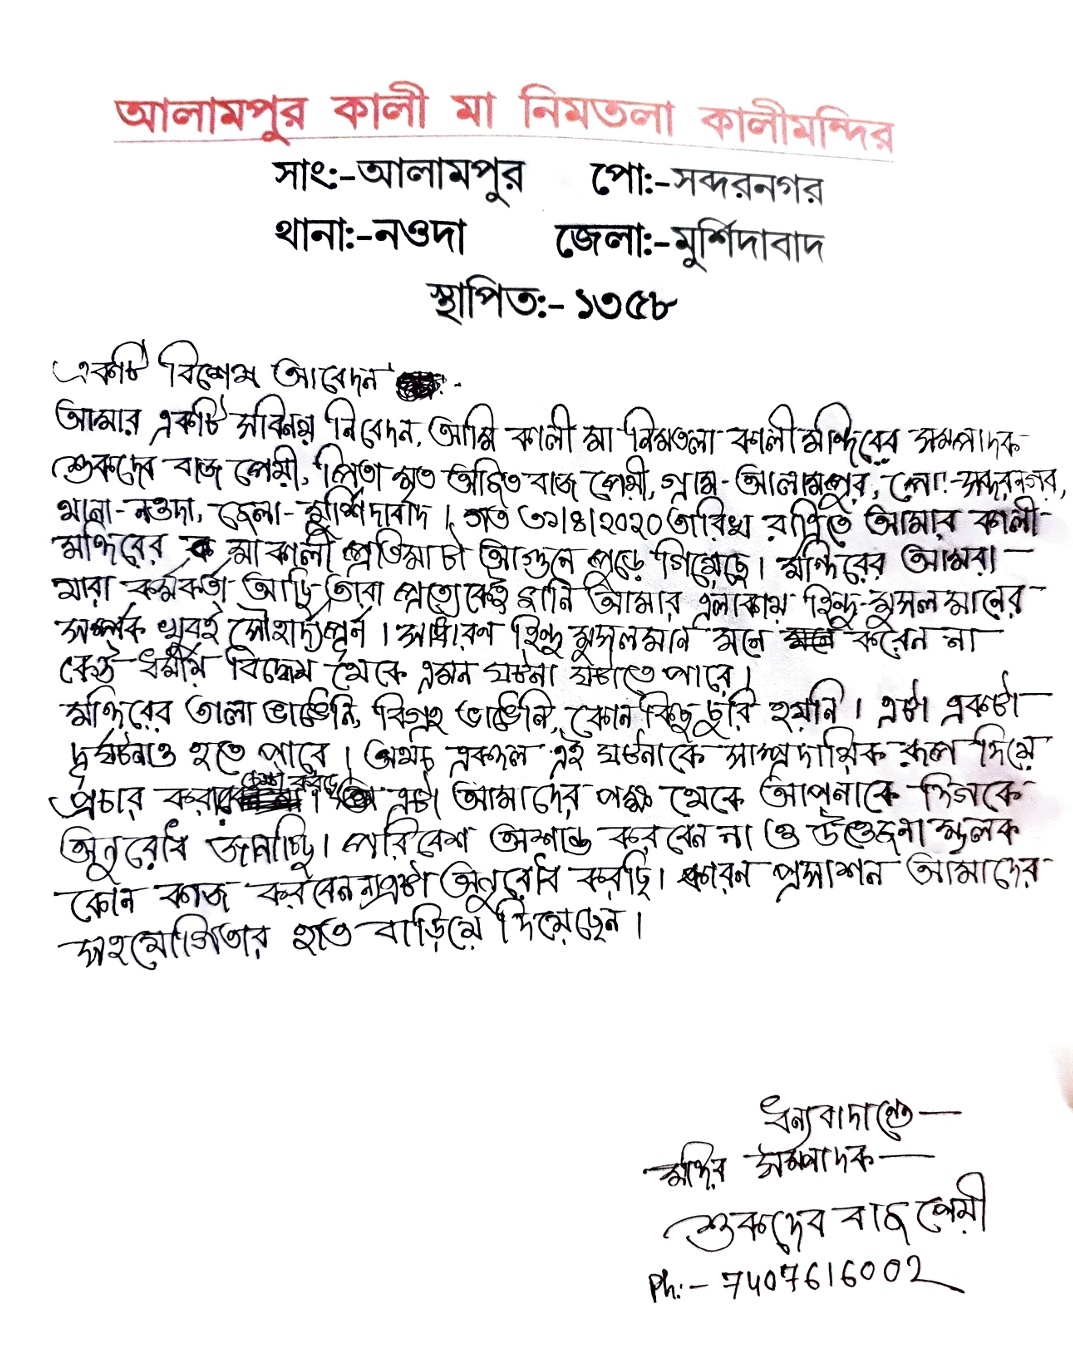 আলামপুর কালী মা নিমতলা কালীমন্দির
সাং:-আলামপুর পো:-সব্দরনগর
থানা:-নওদা জেলা:-মুর্শিদাবাদ
স্থাপিত:- ১৩৫৮
একটি বিশেষ আবেদন -
আমার একটি সবিনয় নিবেদন, আমি কালী মা নিমতলা কালী মন্দিরের সম্পাদক
শুকদেব বাজপেয়ী, পিতা মৃত অজিত বাজপেয়ী, গ্রাম-আলামপুর, পো:-সব্দরনগর,
থানা-নওদা, জেলা-মুর্শিদাবাদ। গত ৩১।৪।২০২০ তারিখ রাত্রিতে আমার কালী
মন্দিরের মা কালী প্রতিমাটা আগুনে পুড়ে গিয়েছে। মন্দিরের আমরা
যারা কর্মকর্তা আছি তারা প্রত্যেকেই জানি আমার এলাকায় হিন্দু-মুসলমানের
সম্পর্ক খুবই সৌহার্দ্যপূর্ন। সাধারণ হিন্দু মুসলমান মনে করেন না
কেউ ধর্মীয় বিদ্বেষ থেকে এমন ঘটনা ঘটাতে পারে।
মন্দিরের তালা ভাঙেনি, বিগ্রহ ভাঙেনি, কোন কিছু চুরি হয়নি। এটা একটা
দূর্ঘটনাও হতে পারে। অথচ একদল এই ঘটনাকে সাম্প্রদায়িক রূপ দিয়ে
প্রচার করার চেষ্টা করছে। এটা আমাদের পক্ষ থেকে আপনাকে দিগকে
অনুরোধ জানাচ্ছি। পরিবেশ অশান্ত করবেন না ও উত্তেজনা মূলক
কোন কাজ করবেন না এটা অনুরোধ করছি। কারন প্রসাশন আমাদের
সহযোগিতার হাত বাড়িয়ে দিয়েছেন।
ধন্যবাদান্তে—
মন্দির সম্পাদক—
শুকদেব বাজপেয়ী
Ph:- 7407616002